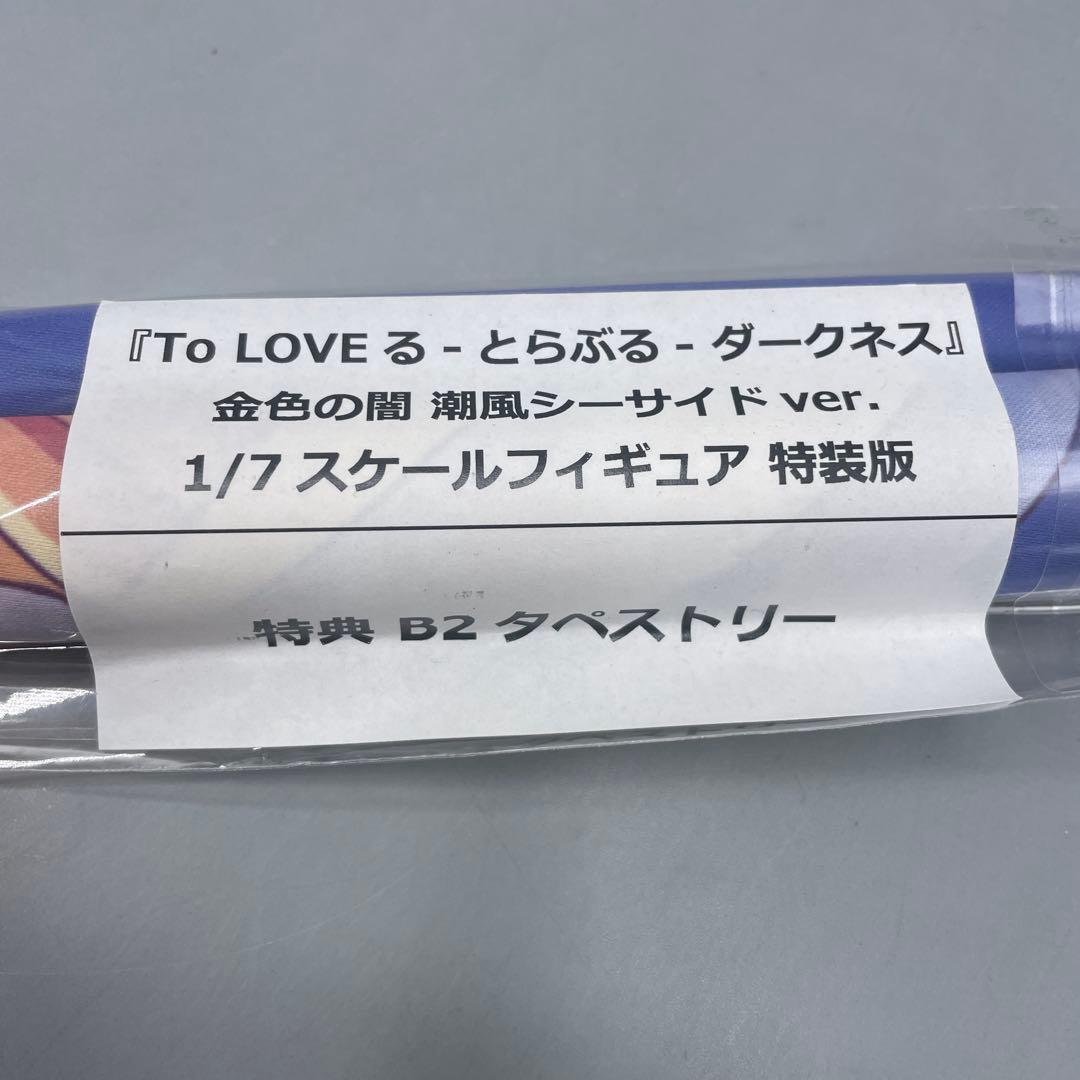 『To LOVE る - とらぶる - ダークネス』
金色の闇 潮風シーサイド ver.
1/7 スケールフィギュア 特装版
特典 B2 タペストリー